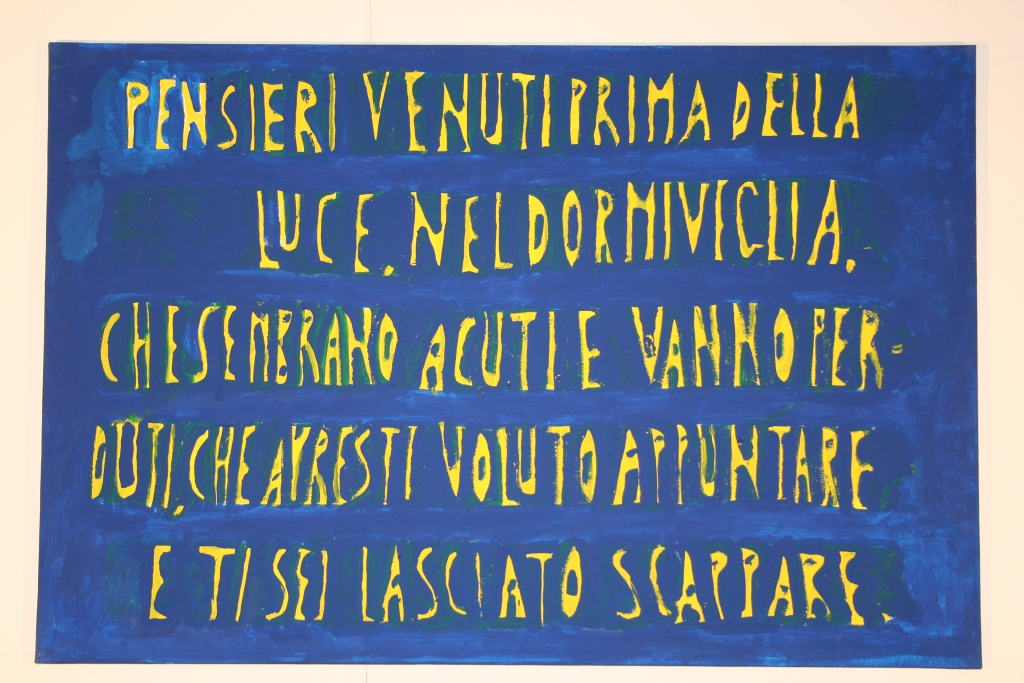 PENSIERI VENUTI PRIMA DELLA
LUCE, NEL DORMIVEGLIA,
CHE SEMBRANO ACUTI E VANNO PER-
DUTI, CHE AVRESTI VOLUTO APPUNTARE
E TI SEI LASCIATO SCAPPARE.